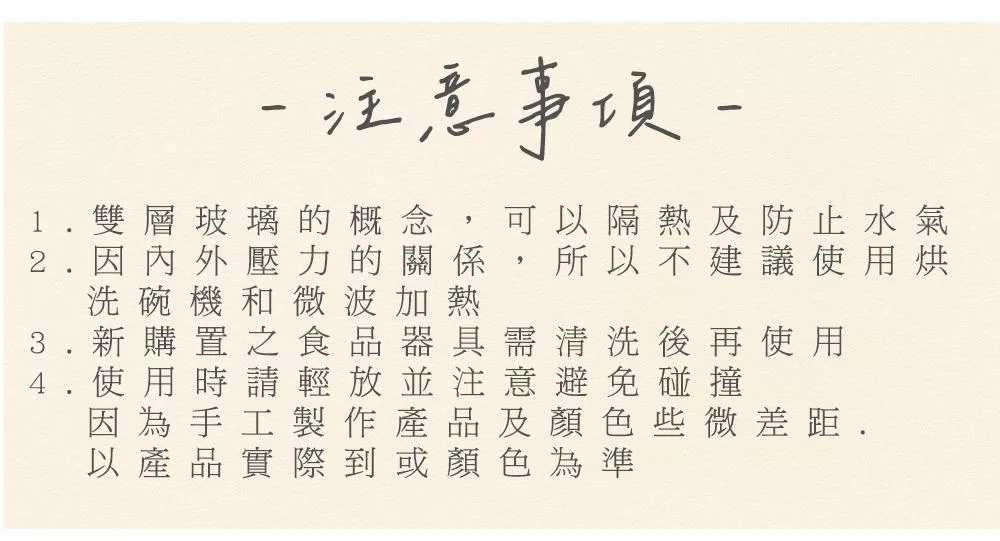 - 注意事項 -
1.雙層玻璃的概念，可以隔熱及防止水氣
2.因內外壓力的關係，所以不建議使用烘
洗碗機和微波加熱
3.新購置之食品器具需清洗後再使用
4.使用時請輕放並注意避免碰撞
因為手工製作產品及顏色些微差距.
以產品實際到或顏色為準